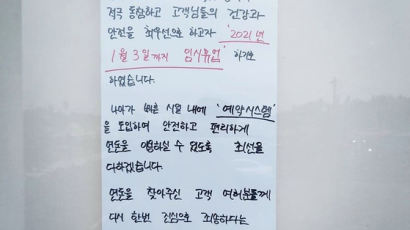 적극 동참하고 고객님들의 건강과
안전을 최우선으로 하고자 '2021년
1월 3일까지 임시휴업' 하기로
하였습니다.
나아가 빠른 시일 내에 '예약시스템'
을 도입하여 안전하고 편리하게
연돈을 이용하실 수 있도록 최선을
다하겠습니다.
연돈을 찾아주신 고객 여러분들께
다시 한번 진심으로 죄송하다는